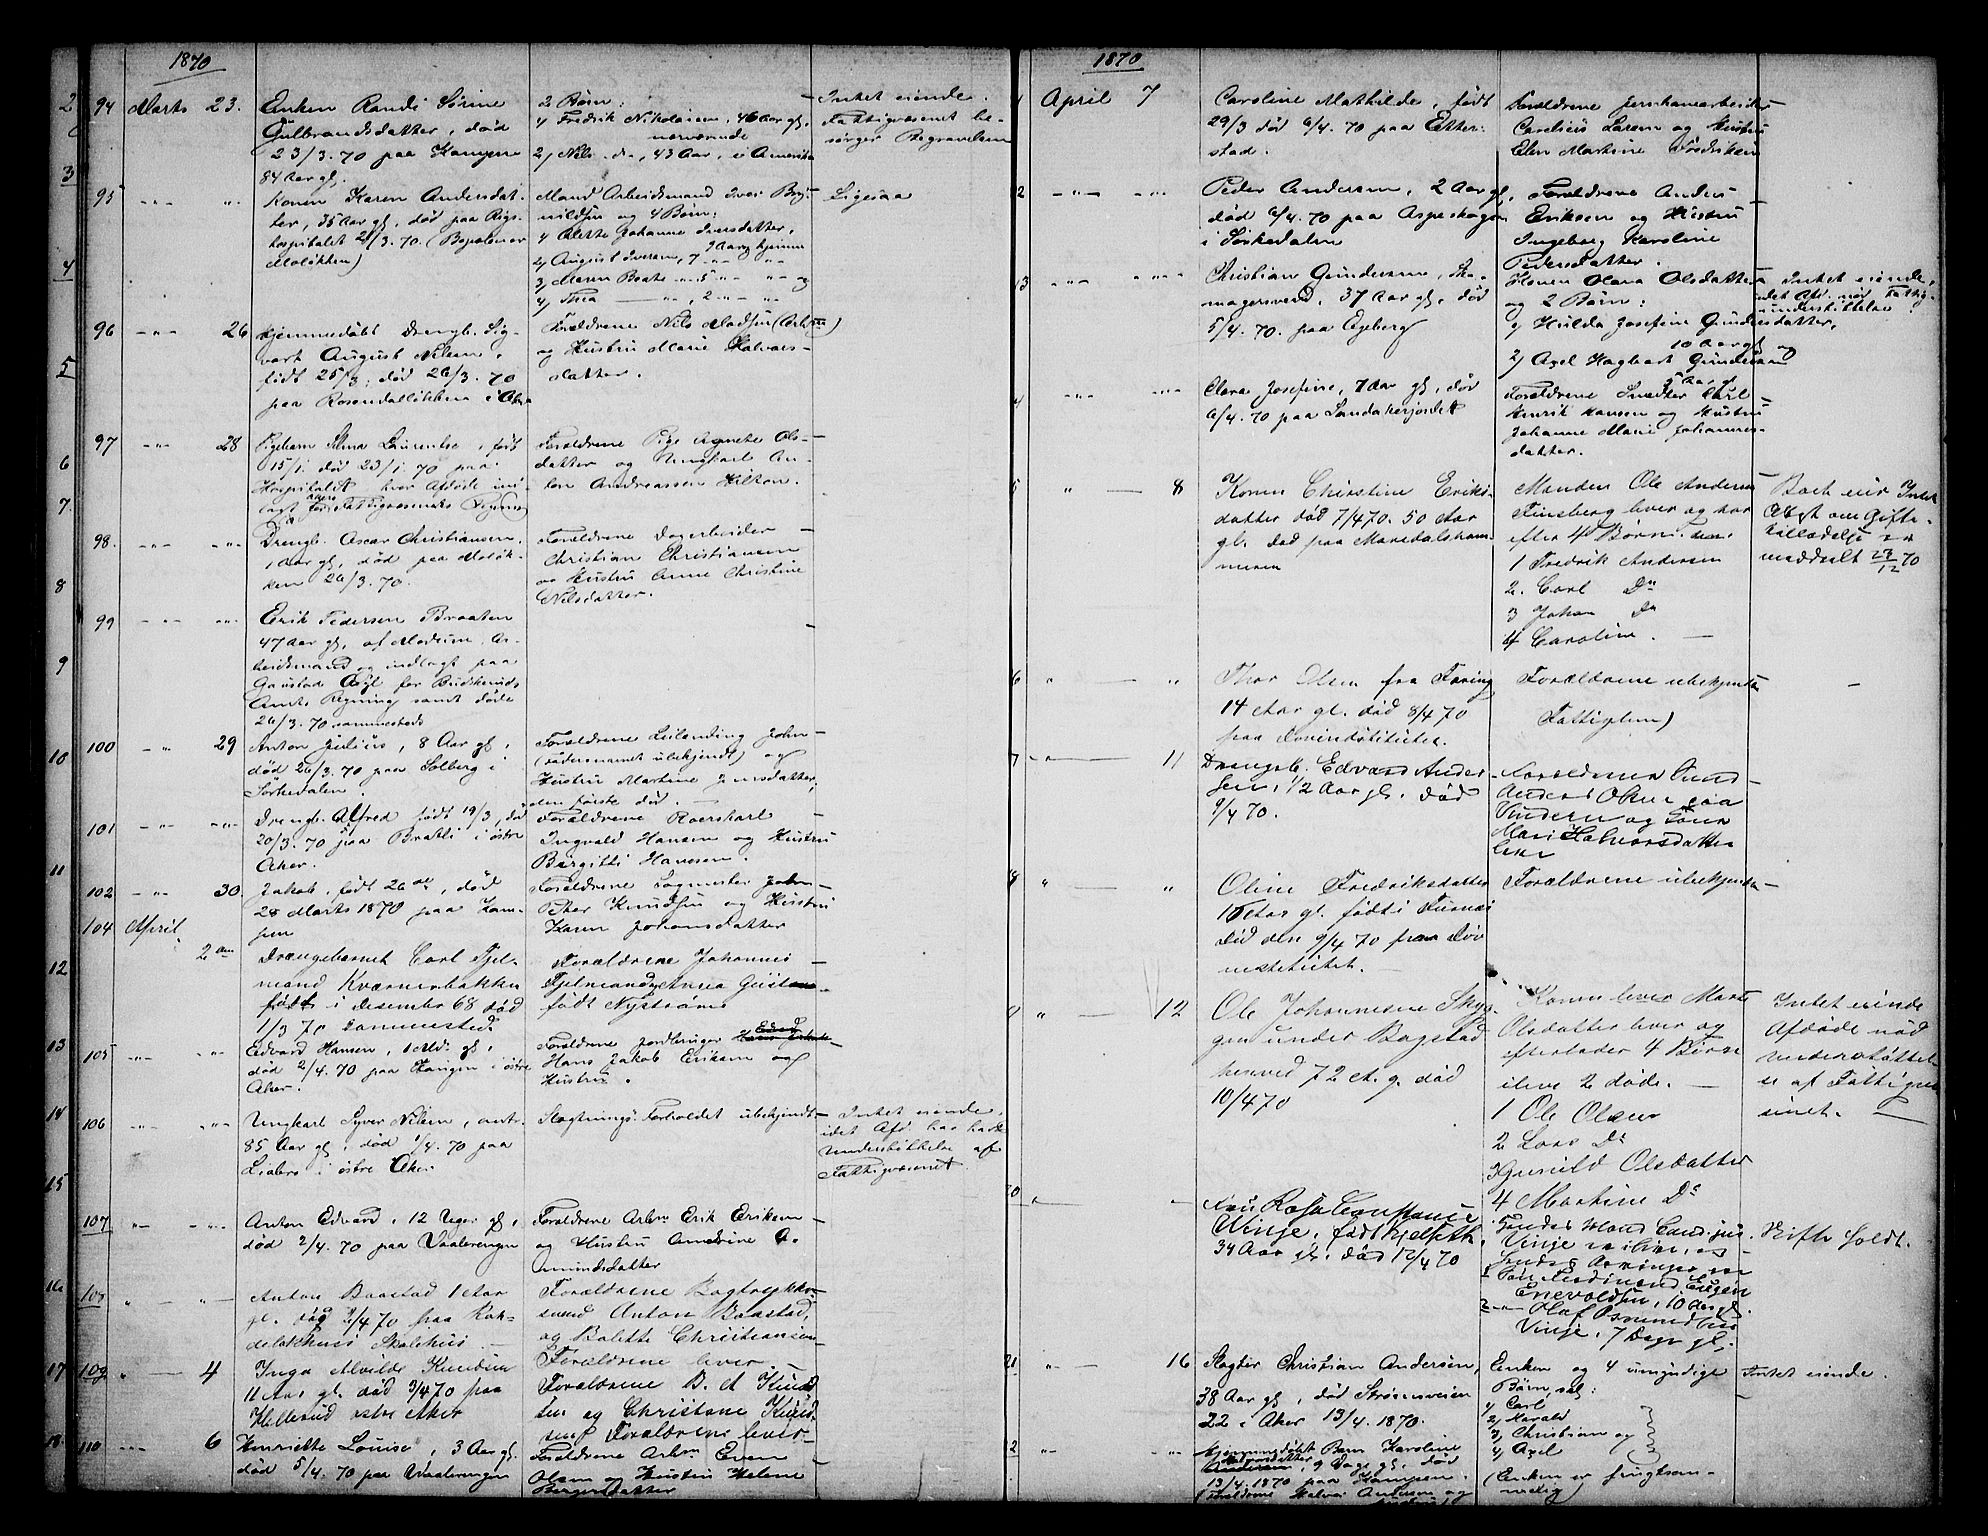 1870
94 Marts 23. Enken Randi Sørine
Gulbrandsdatter, død
23/3. 70 paa Kampen
84 Aar gl.
2 Børn:
1) Fredrik Nikolaisen, 46 Aar gl.,
nærværende
2) Nils do, 43 Aar, i Amerika
Intet eiende.
Fattigvæsenet be-
sørger Begravelsen
95 -"- "- Konen Karen Andersdat-
ter, 35 Aar gl., død paa Rigs-
hospitalet 21/3. 70. (Bopæl
Moløkken)
Mand Arbeidsmand Iver
og 4 Børn:
1) Alette Johanne Iversdatter,
9 Aar, hjemme
2) August Iversen, 7 -"- -"-
3) Maren Beate -"- 5 -"- -"- og
4) Thea -"-, 2 -"- -"-
Ligesaa
96 -"- 26 Hjemmedøbt Drengb. Sig-
vart August Nilsen,
født 25/3, død 26/3. 70
paa Rosendalløkken i Aker
Forældrene Nils Madsen (Arb)
og Hustru Marie Halvors-
datter.
97 -"- 28 Pigebarn Alma Laurentse, født
15/1. død 23/1. 70 paa
Hospitalet hvor Afdøde
lagt for Fattigvæsenets Regning
Forældrene Pige Agnethe Ols-
datter og Ungkarl An-
ton Andreassen Hilton.
98. -"- -"- Drengb. Oscar Christiansen,
1 Aar gl., død paa Moløk-
ken 26/3. 70.
Forældrene Dagarbeider
Christian Christiansen
og Hustru Anne Christine
Nilsdatter.
99 -"- -"- Erik Pedersen Braaten
47 Aar gl., af Modum, Ar-
beidsmand og indlagt paa
Gaustad Asyl for Buskeruds
Amts Regning samt døde
26/3. 70 sammesteds
100 -"- 29 Anton Julius, 8 Aar gl.,
død 26/3. 70 paa Solberg i
Sørkedalen.
Forældrene Leilending John
(Fadersnavnet ubekjendt) og
Hustru Martine Jensdatter,
den første død.
101 -"- -"- Drengb. Alfred født 19/3, død
20/3. 70 paa Bratli i østre
Aker.
Forældrene Roerskarl
Ingvald Hansen og Hustru
Birgitte Hansen.
102 -"- 30. Jakob, født 26de, død
28 Marts 1870 paa Kam-
pen
Forældrene Sagmester John
Peter Knudsen og Hustru
Karen Johansdatter
104 April
2den Drengebarnet Carl Fjel-
mand Kværnerbakken
født i Desember 68 død
1/3 70 sammesteds
Forældrene Johannes
Fjelmand og Anna
født Nystrøm
105 -"- -"- Edvard Hansen, 1 Md. gl.,
død 2/4. 70 paa Tangen i østre
Aker.
Forældrene Jordbruger
Hans Jakob Eriksen og
Hustru.
106 -"- -"- Ungkarl Syver Nilsen, ant.
85 Aar gl., død 1/4. 70 paa
Liabro i østre Aker.
Slægtnings Forholdet ubekjendt
Intet eiende,
idet Afd. har havt
Understøttelse af
Fattigvæsenet.
107 -"- -"- Anton Edvard, 12 Uger gl.,
død 2/4. 70 paa Vaalerengen
Forældrene Arbm Erik Eriksen
og Hustru Andrine A-
mundsdatter
Anton Baastad 1 Aar
gl. død 2/4 70 paa
Forældrene Bogtrykker-
svend Anton Baastad,
og Bolette Christiansen
109 " 4 Inga Alvilde Knudsen
11 Aar gl. død 3/4 70 paa
Hellerud østre Aker
Forældrene lever.
Forældrene B. A Knud-
sen og Christiane Knud-
sen Forældrene lever
110 -"- 6 Henriette Louise, 3 Aar gl.,
død 5/4. 70 paa Vaalerengen
Forældrene Arbm Even
Olsen og Hustru Helene
Bergersdatter
1870
April 7 Caroline Mathilde, født
29/3 død 6/4. 70 paa Etter-
stad.
Forældrene Jernbanearbeider
Carelius Larsen og Hustru
Elen Martine Fredriksen
2 -"- -"- Peder Andersen, 2 Aar gl,
død 6/4. 70 paa Aspeskogen
i Sørkedalen
Forældrene Anders
Eriksen og Hustru
Ingeborg Karoline
Pedersdatter.
13 -"- -"- Christian Gundersen, Sko-
magersvend, 37 Aar gl., død
5/4. 70. paa Egeberg
Konen Olava Olsdatter
og 2 Børn:
1) Hulda Josefine Gundersdatter,
10 Aar gl. og
2) Axel Hagbart Gundersen
5 Aar gl.
Intet eiende,
idet Afd. nød Fattig-
understøttelse.
4 -"- -"- Clara Josefine, 7 Aar gl., død
6/4. 70 paa Sandakerjordet
Forældrene Smed Carl
Henrik Hansen og Hustru
Johanne Marie Johannes-
datter.
5 " 8 Konen Christine Eriks-
datter død 7/4 70. 50 Aar
gl. død paa Maridalsham-
meren
Manden Ole Andersen
Finsberg lever og har
efter 4 Børn:
1 Fredrik Andersen
2. Carl Do
3 Johan Do
4 Caroline.
Boet eier Intet
Attest om Gifte-
tilladelse
meddelt 23/12 70
6 " " Thor Olsen fra
14 Aar gl. død 8/4 70
paa Døvinstitutet.
Forældrene ubekjendte
Fattiglem)
7 " 11 Drengeb. Edvard Ander-
sen, 1/2 Aar gl. død
9/4 70.
Forældrene
Anders Olsen paa
Vindern og
Mari Halvorsdatter
8 " " Oline Fredriksdatter
Aar gl. født i Furnæs
død den 9/4 70 Døv
institutet.
Forældrene ubekjendte
" 12 Ole Johannesen Skyg-
gen under Bogstad
henved 72 A. g. død
10/4 70
Konen lever
Olsdatter lever og
efterlader 4 Børn
ilive 2 døde.
1 Ole Olsen
2 Lars Do
3 Gunild Olsdatter
4 Martine Do
Intet eiende
Afdøde nød
Understøttel-
se af Fattigvæ-
senet.
20 " Fru Rosa Constance
Vinje, født Kjelseth
34 Aar gl. død 12/4 70
Mand Cand. jur.
Vinje
1 Søn Ferdinand Eugen
Enevoldsen, 10 Aar gl.
2 -"- Olaf
Vinje, 7 Dage gl.
Skifte holdt.
21 " 16 Slagter Christian Andersen,
38 Aar gl., død Strømsveien
22 i Aker 13/4. 1870.
Enken og 4 umyndige
Børn,
1) Carl
2) Harald
3) Christian og
4) Axel
(Enken er frugtsom-
melig)
Intet eiende.
2 -"- -"- Hjemmedøbt Barn Karoline
9 Dage gl., død
13/4. 1870 paa Kampen.
(Forældrene Halvor Andersen og